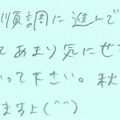 順調に進んで
てあまり気にせ
って下さい。秋
ますよ(^^)